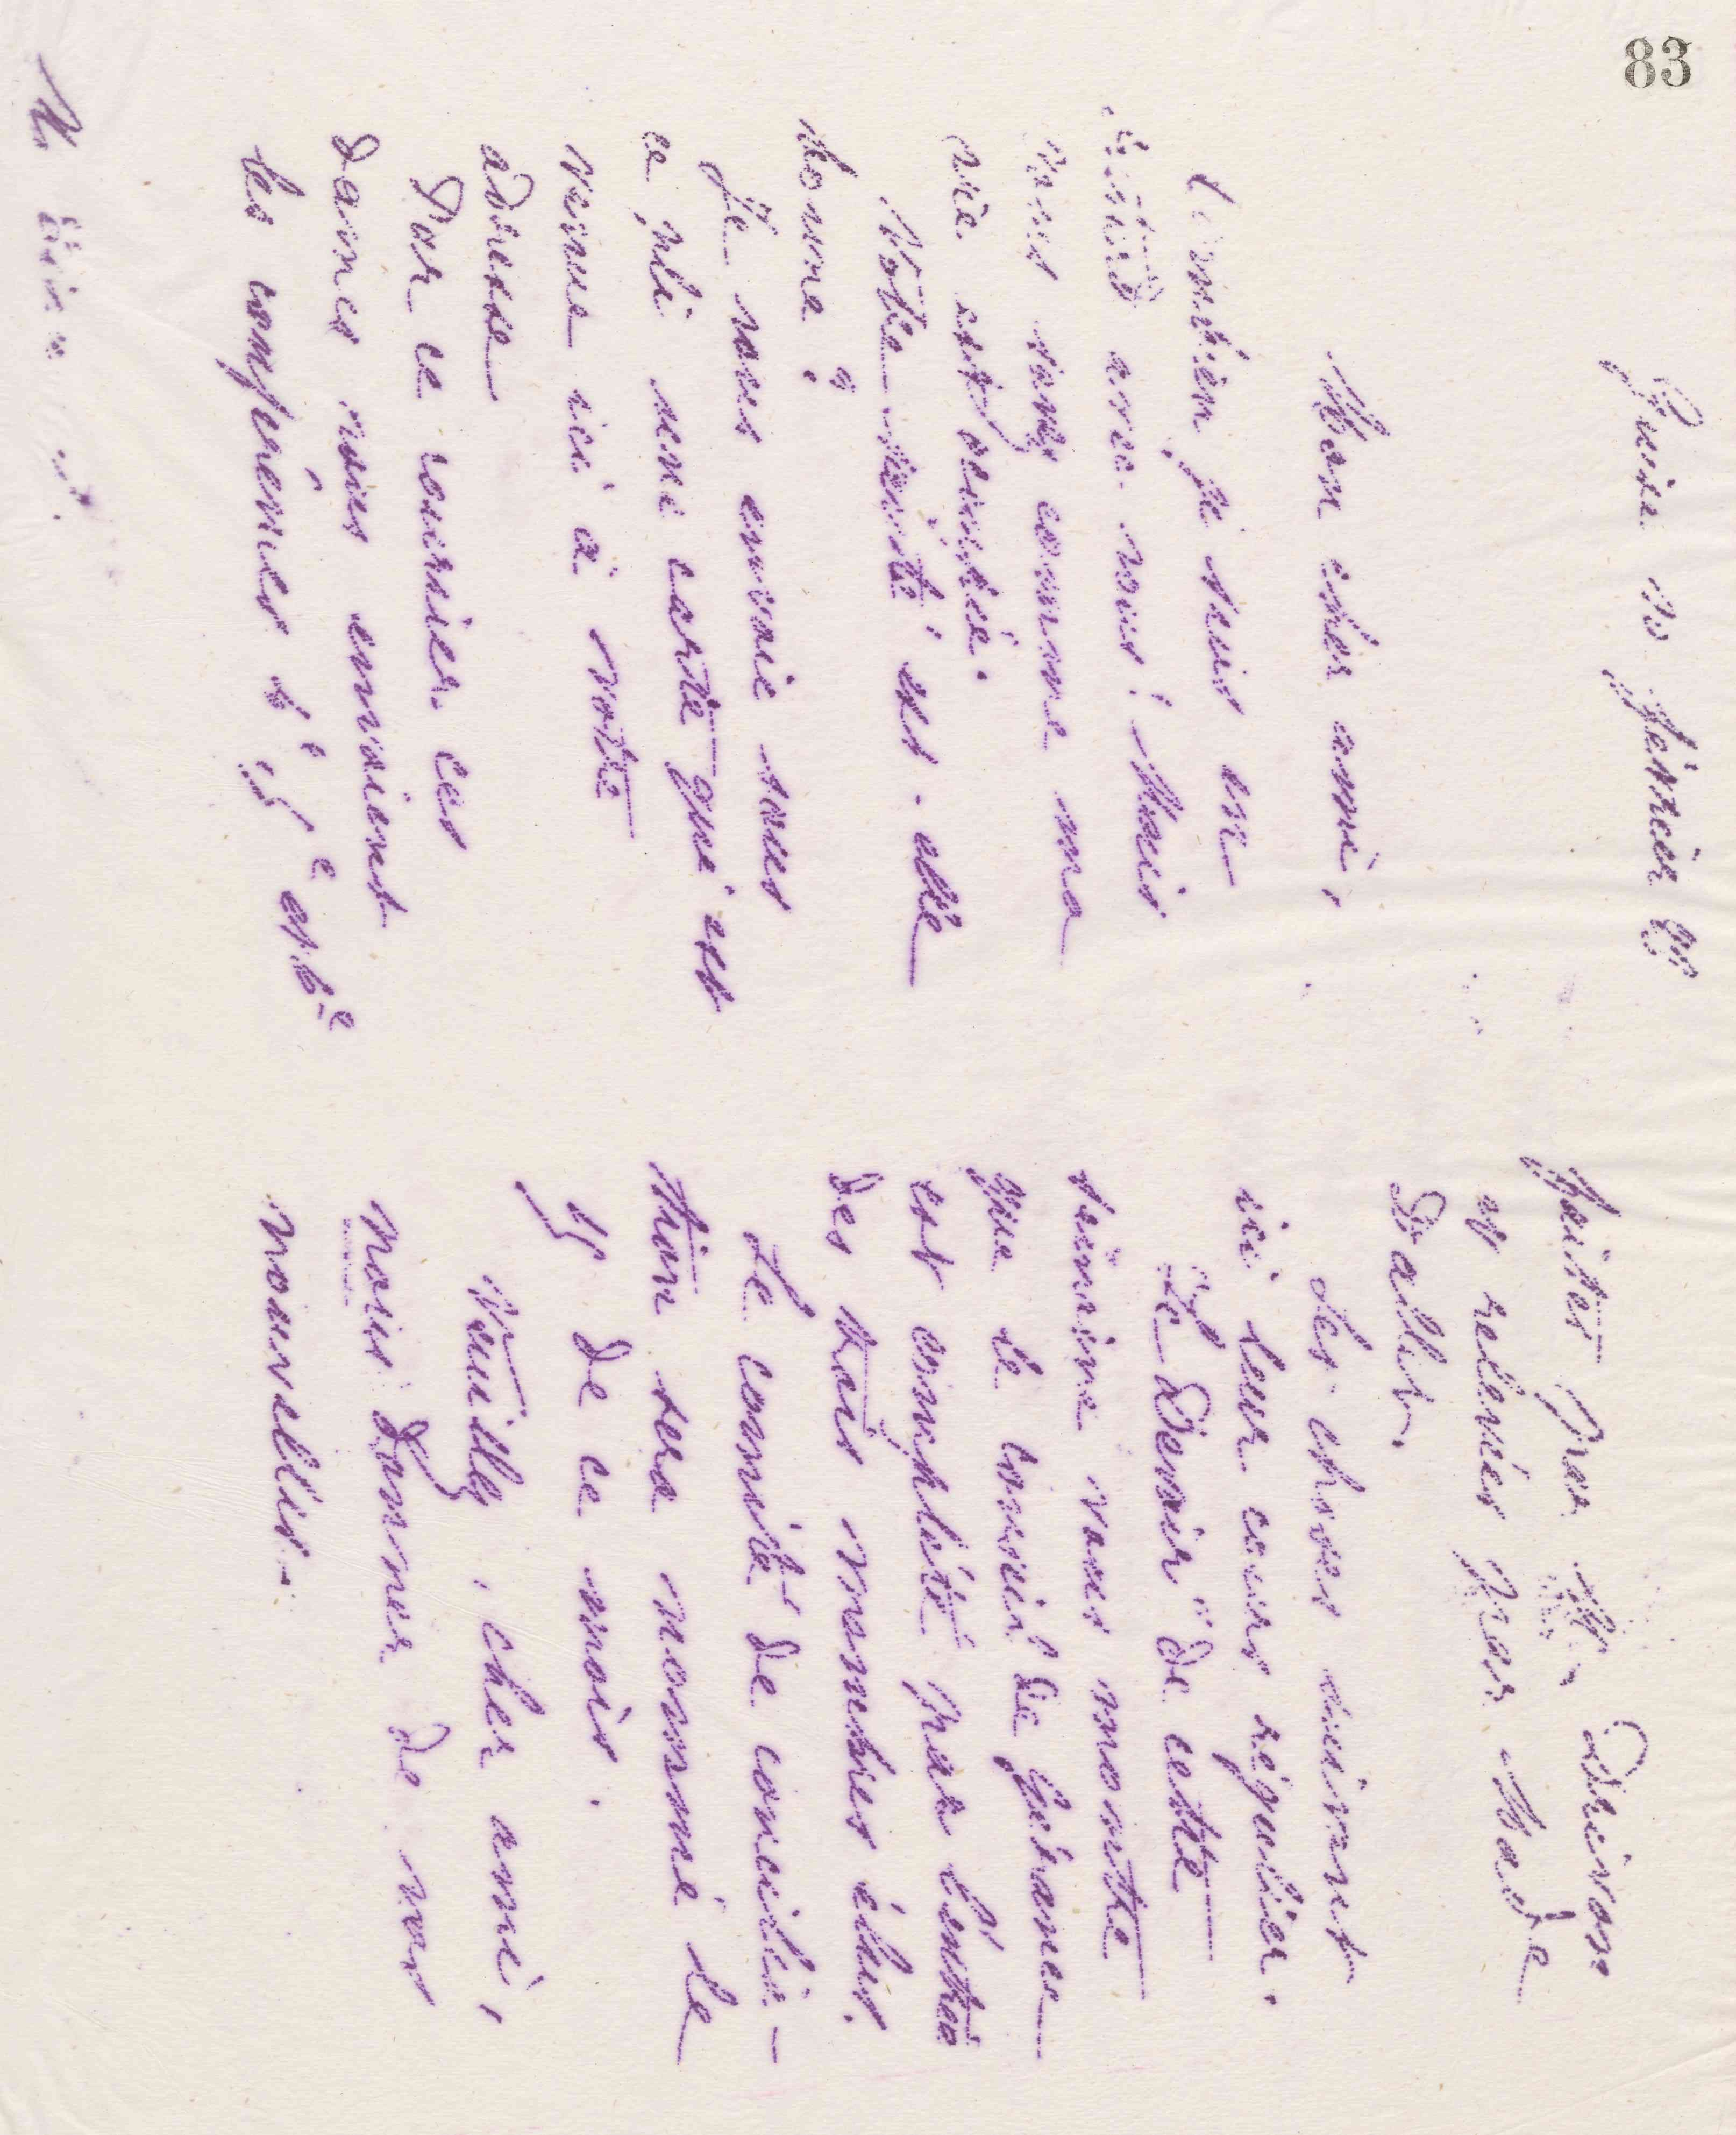 83
Guise 10 janvier 89
Mon cher ami,
Combien je suis en
retard avec vous ! Mais
vous savez comme ma
vie est occupée.
Votre santé est-elle
bonne ?
Je vous envoie sous
ce pli une carte qui est
venue ici à votre
adresse
Par ce courrier ces
dames vous envoient
les conférences 4e, 5e et 6e
faites par M. Deynaud
et relevées par Made
Dallet.
Les choses suivent
ici leur cours régulier.
Le Devoir de cette
semaine vous montre
que le conseil de gérance
est complété par l'entrée
des trois membres élus.
Le comité de concilia-
tion sera nommé le
15 de ce mois.
Veuillez, cher ami,
nous donner de vos
nouvelles.